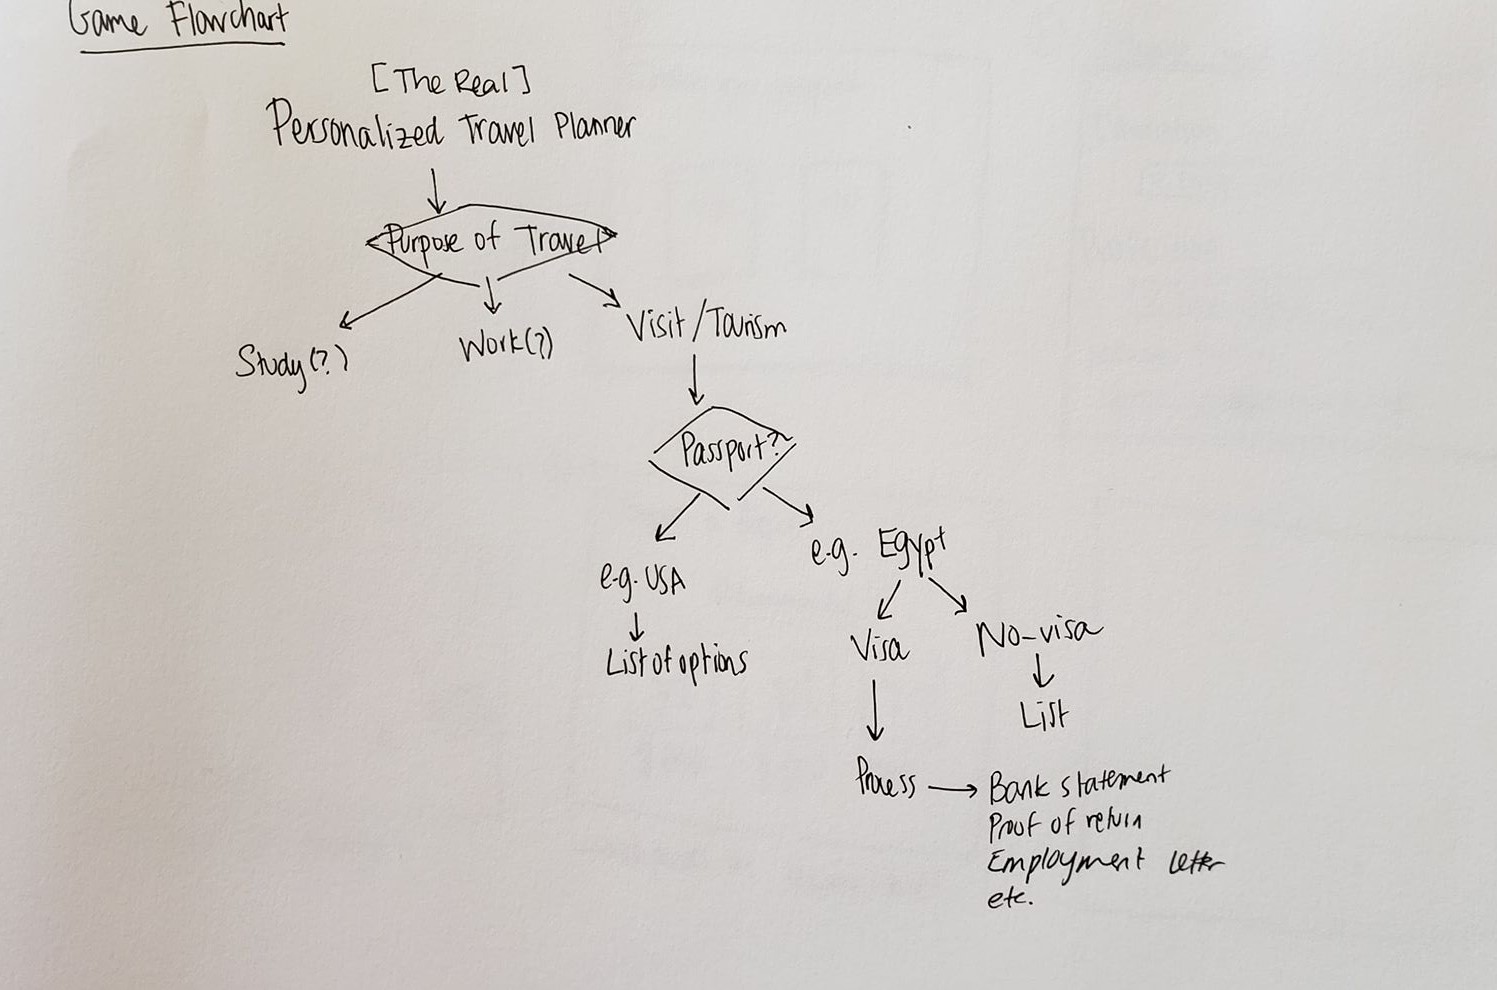 Game Flowchart
[The Real]
Personalized Travel Planner
Purpose of Travel
Study(?)
Work(?)
Visit/Tourism
Passport?
e.g. USA
List of options
e.g. Egypt
Visa
No-visa
List
Process
Bank statement
Proof of return
Employment letter
etc.